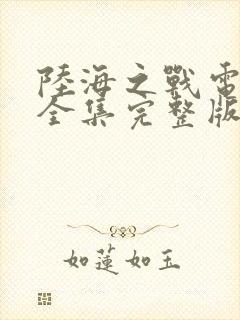 陸海之戰電
全集完整版
如蓮如玉